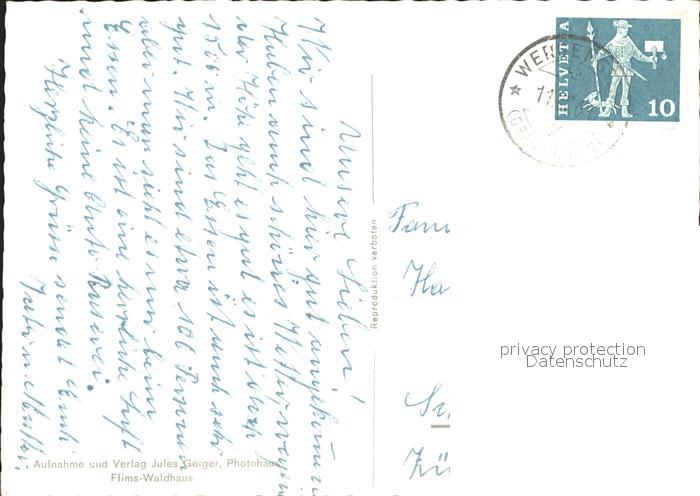 Unsere Lieben!
Wir sind hier gut angekommen
Haben auch schönes Wetter wegen
der Höhe geht es gut es ist über
1500 m. Das Essen ist auch sehr
gut. Wir sind etwa 106 Personen
aber man sieht es nur beim
Essen. Es ist eine herrliche Luft
und keine Auto Raserei.
Herzliche Grüsse sendet Euch
HELVETIA
10
WER
11
Fam
Ha
Zü
Reproduktion verboten
privacy protection
Datenschutz
Aufnahme und Verlag Jules Geiger, Photohaus
Flims-Waldhaus